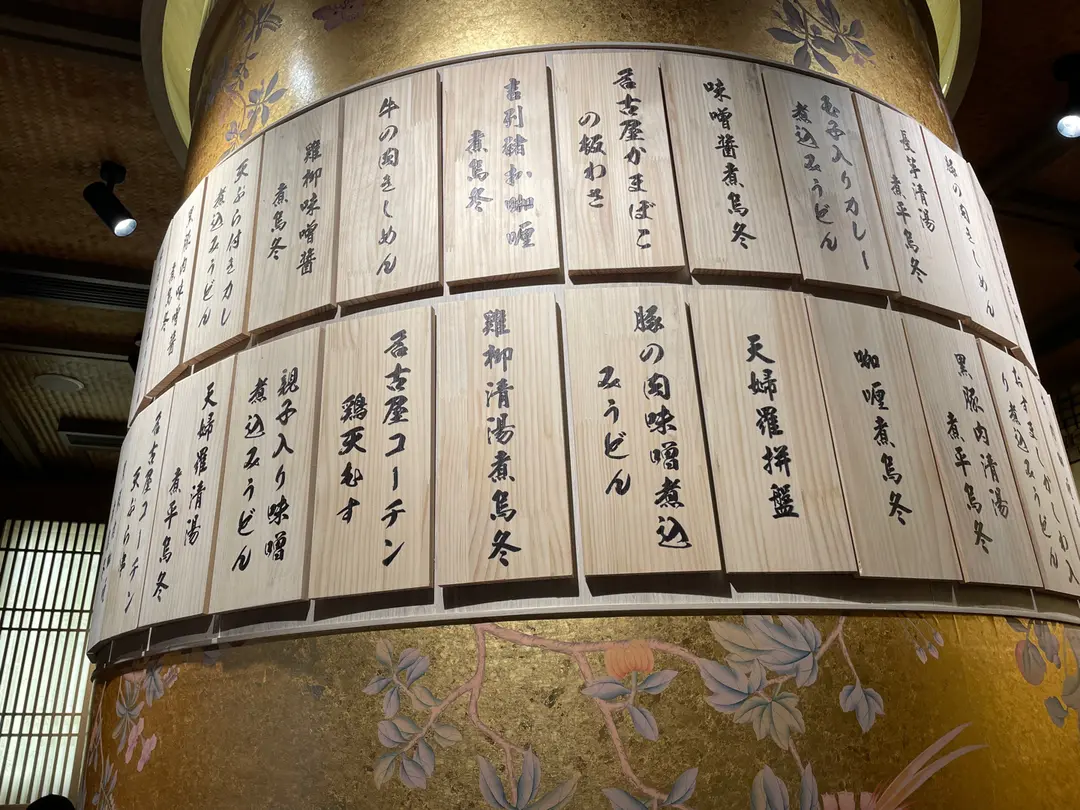 豚の肉きしめん
長芋清湯
煮平烏冬
玉子入りカレー
煮込みうどん
味噌醬煮烏冬
名古屋かまぼこ
の板わさ
吉列豬扒咖喱
煮烏冬
牛の肉きしめん
雞柳味噌醬
煮烏冬
天ぷら付きカレー
煮込みうどん
豚肉味噌醬
煮烏冬
り煮込みうどん
黑豚肉清湯
煮平烏冬
咖喱煮烏冬
天婦羅拼盤
豚の肉味噌煮込
みうどん
雞柳清湯煮烏冬
名古屋コーチン
鶏天むす
親子入り味噌
煮込みうどん
天婦羅清湯
煮平烏冬
名古屋コーチン
天ぷら串